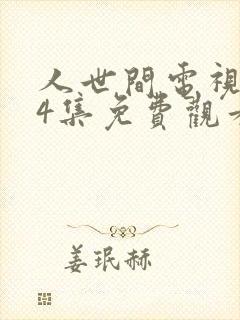 人世間電視
4集免費觀
姜珉赫